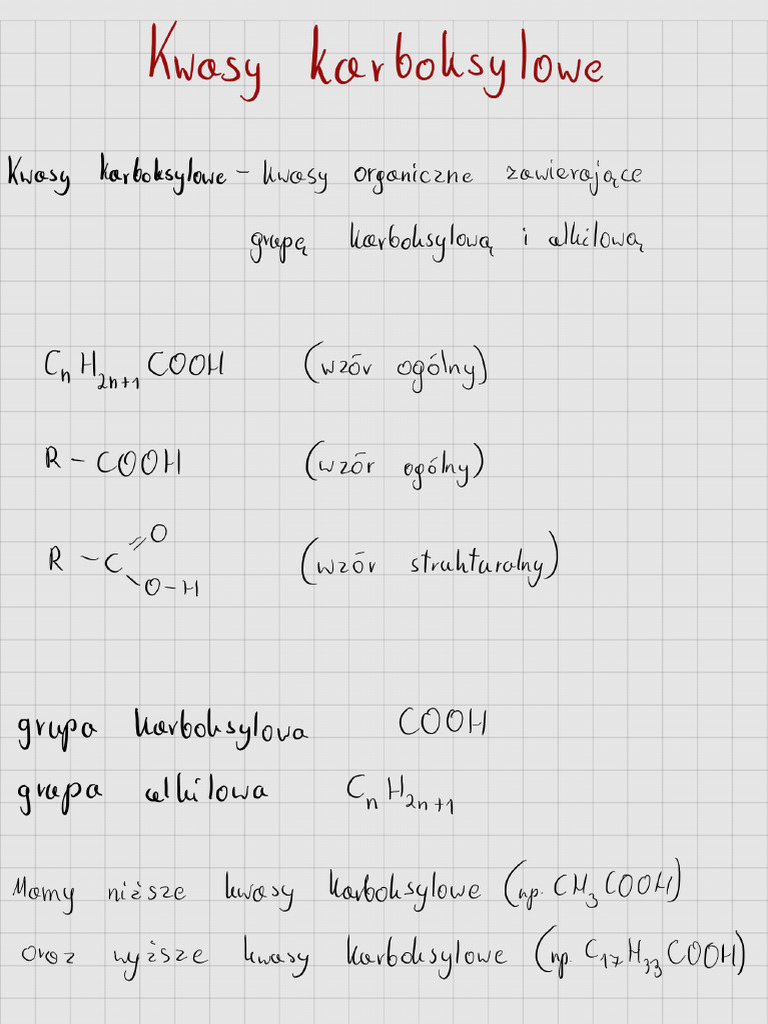 Kwasy karboksylowe
Kwasy karboksylowe – kwasy organiczne zawierające
grupę karboksylową i alkilową
CₙH₂ₙ₊₁COOH (wzór ogólny)
R – COOH (wzór ogólny)
R – C =O O–H (wzór strukturalny)
grupa karboksylowa COOH
grupa alkilowa CₙH₂ₙ₊₁
Mamy niższe kwasy karboksylowe (np. CH₃COOH)
oraz wyższe kwasy karboksylowe (np. C₁₇H₃₃COOH)